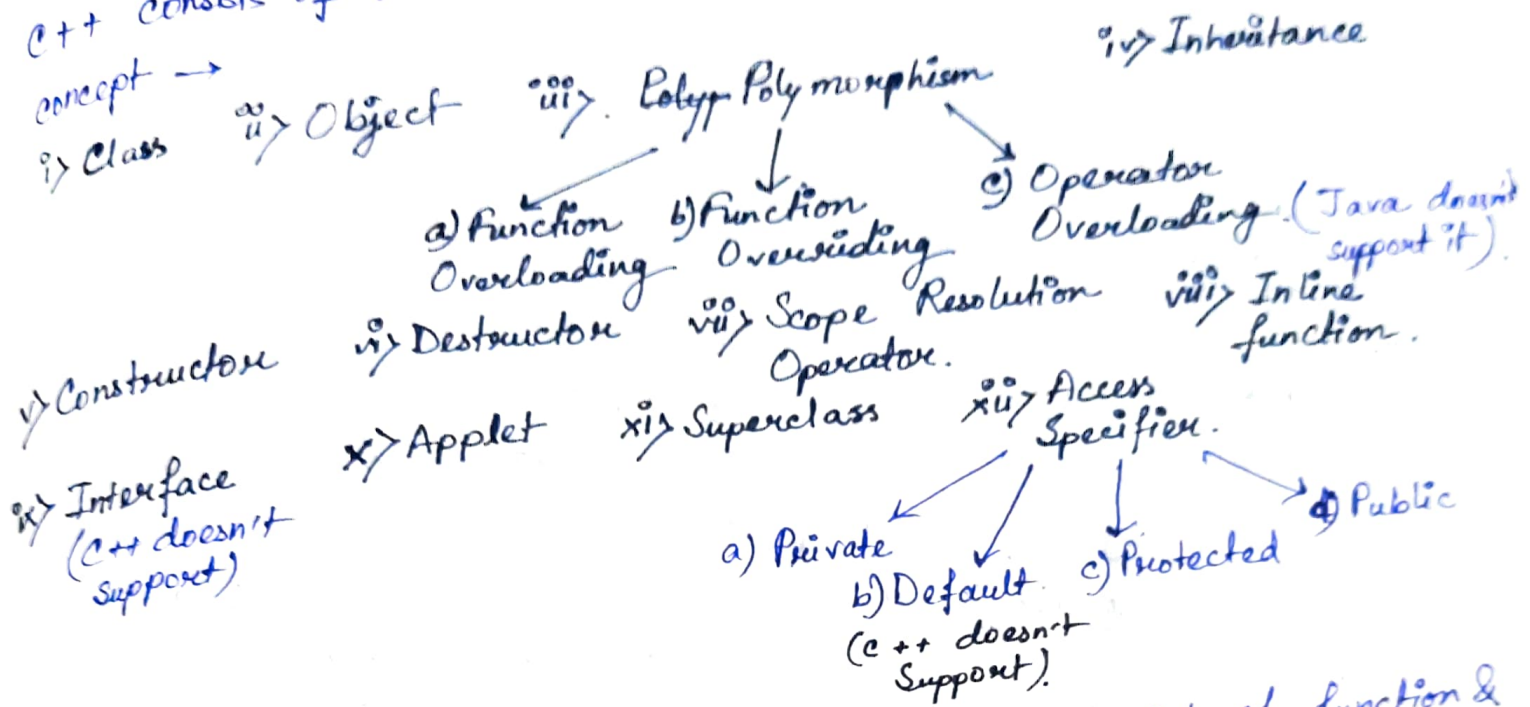 C++
concept →
i> Class ii> Object iii>. Polyp Polymorphism iv> Inheritance
a) Function Overloading b) Function Overriding c) Operator Overloading. (Java doesn't support it).
v> Constructor vi> Destructor vii> Scope Resolution Operator. viii> Inline function.
ix> Interface (C++ doesn't support) x> Applet xi> Superclass xii> Access Specifier.
a) Private b) Default (C++ doesn't Support). c) Protected d) Public
function &